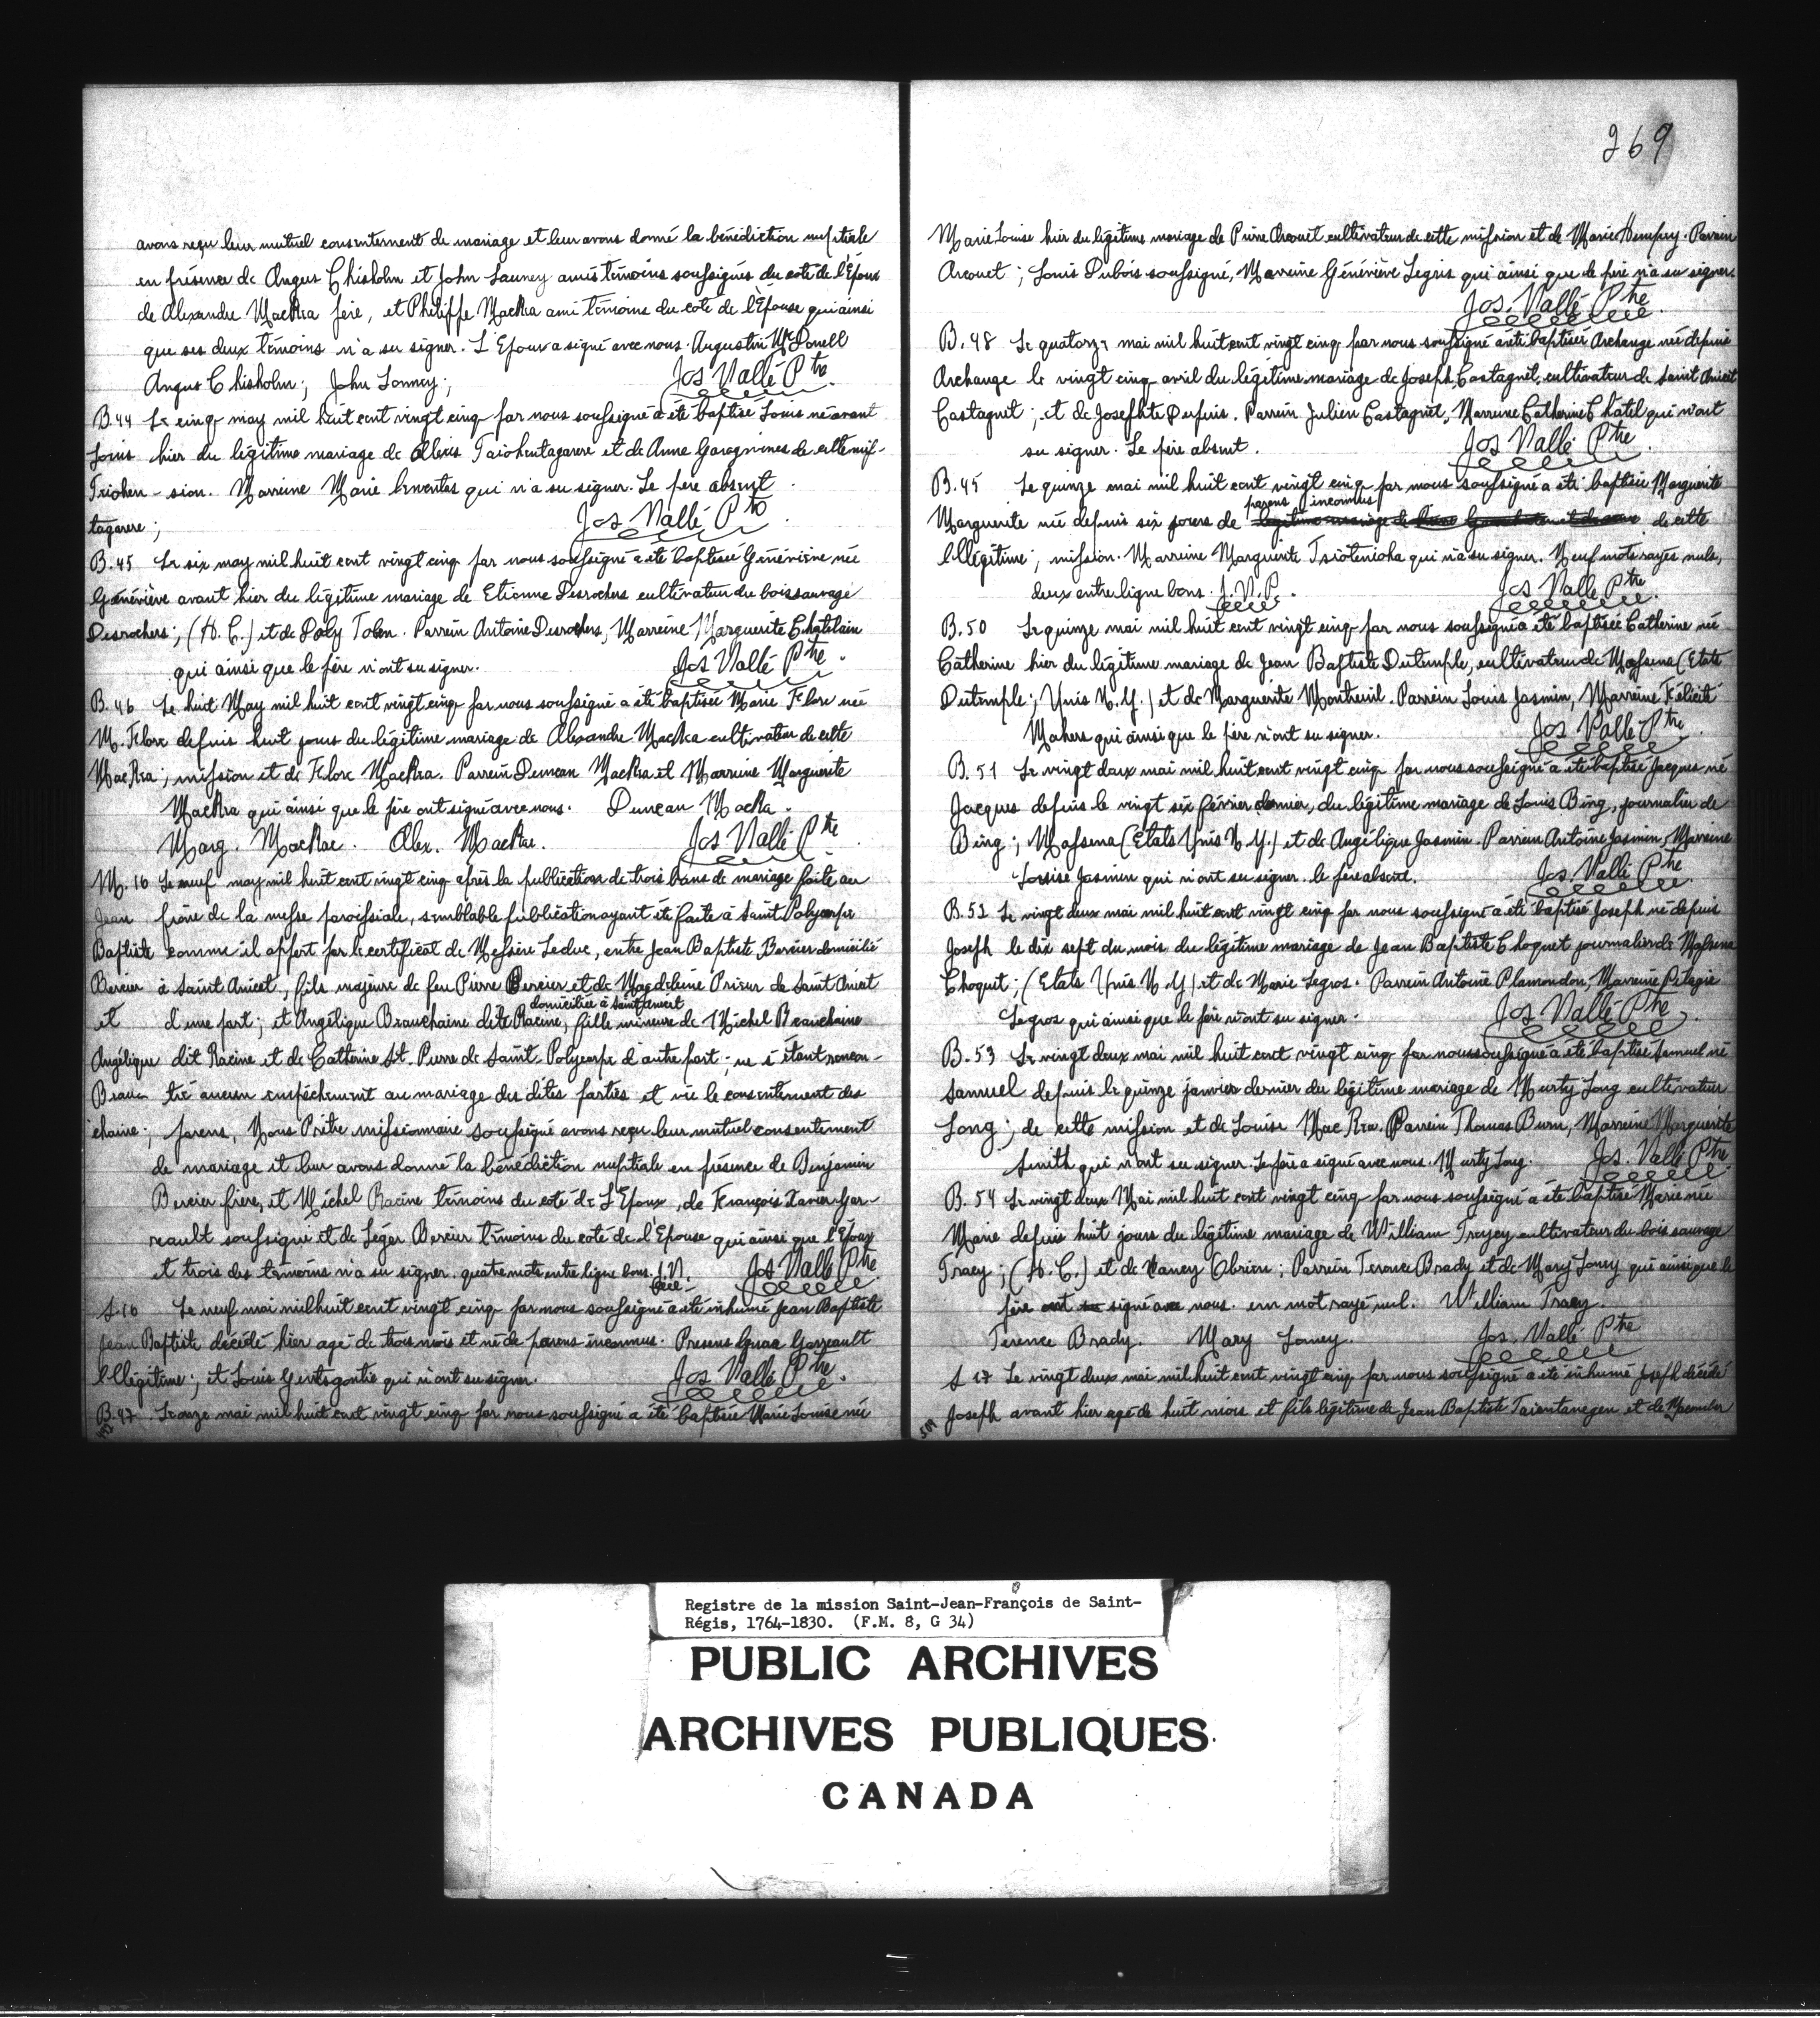 avons reçu leur mutuel consentement de mariage et leur avons donné la bénédiction nuptiale
en présence de Angus Chisholm et John Launey amis témoins soussignés du coté de l'Epoux
de Alexandre MacRa père, et Philippe MacRa ami témoins du coté de l'Epouse qui ainsi
que ses deux témoins n'a su signer. L'Epoux a signé avec nous. Augustin McDonell
Angus Chisholm; John Lonney; Jos Vallé Ptre
B.44 Le cinq may mil huit cent vingt cinq par nous soussigné a été baptisé Louis né avant
Louis hier du légitime mariage de Alexis Taiohentagarere et de Anne de cette mis-
Taiohen- sion. Marraine Marie qui n'a su signer. Le père absent
tagarere; Jos Vallé Ptre
B.45 Le six may mil huit cent vingt cinq par nous soussigné a été baptisée Généviève née
Généviève avant hier du légitime mariage de Etienne Desrochers cultivateur du bois sauvage
Desrochers; (H.C.) et de Poly Tolen. Parrein Antoine Desrochers, Marreine Marguerite Chatelain
qui ainsi que le père n'ont su signer. Jos Vallé Ptre
B.46 Le huit May mil huit cent vingt cinq par nous soussigné a été baptisée Marie Flore née
M. Flore depuis huit jours du légitime mariage de Alexandre MacRa cultivateur de cette
MacRa; mission et de Flore MacRa. Parrein Duncan MacRa et Marreine Marguerite
MacRa qui ainsi que le père ont signé avec nous. Duncan MacRa.
Marg. MacRae. Alex. MacRae. Jos Vallé Ptre
M.16 Le neuf may mil huit cent vingt cinq après la publication de trois bans de mariage faite au
Jean prône de la messe paroissiale, semblable publication ayant été faite à Saint Polycarpe
Baptiste comme il appert par le certificat de Messire Leduc, entre Jean Baptiste Bercier domicilié
Bercier à Saint Anicet, fils majeure de feu Pierre Bercier et de Magdeleine Prieur de Saint Anicet
domiciliée à Saint Anicet
et d'une part; et Angélique Beauchaine dite Racine, fille mineure de Michel Beauchaine
Angélique dit Racine et de Catherine St. Pierre de Saint Polycarpe d'autre part; ne s'étant rencon-
Beau- tré aucun empêchement au mariage des dites parties et vu le consentement des
chaine; parens, Nous Prêtre missionnaire soussigné avons reçu leur mutuel consentement
de mariage et leur avons donné la bénédiction nuptiale en présence de Benjamin
Bercier frère, et Michel Racine témoins du coté de l'Epoux, de François Xavier Gar-
reault soussigné et de Léger Bercier témoins du coté de l'Epouse qui ainsi que l'Epoux
et trois des témoins n'a su signer. quatre mots entre ligne bons. J.V. Jos Vallé Ptre
S.16 Le neuf mai mil huit cent vingt cinq par nous soussigné a été inhumé Jean Baptiste
Jean Baptiste décédé hier agé de trois mois et né de parens inconnus. Presens Ignace Garreault
Illégitime; et Louis qui n'ont su signer. Jos Vallé Ptre.
B.47 Le onze mai mil huit cent vingt cinq par nous soussigné a été baptisée Marie Louise née
269
Marie Louise hier du légitime mariage de Pierre Arcouet cultivateur de cette mission et de Marie Hempey. Parrein
Arcouet; Louis Dubois soussigné, Marreine Généviève Legris qui ainsi que le père n'a su signer.
Jos. Vallé Ptre.
B.48 Le quatorze mai mil huit cent vingt cinq par nous soussigné a été baptisée Archange née depuis
Archange le vingt cinq avril du légitime mariage de Joseph Castagnet, cultivateur de Saint Anicet
Castagnet; et de Josephte Dupuis. Parrein Julien Castagnet, Marreine Catherine Chatel qui n'ont
su signer. Le père absent. Jos Vallé Ptre.
B.45 Le quinze mai mil huit cent vingt cinq par nous soussigné a été baptisée Marguerite
parens inconnus
Marguerite née depuis six jours de de cette
Illégitime; mission. Marreine Marguerite Tsiotenioha qui n'a su signer. Neuf mots rayés nuls,
deux entre ligne bons. J.V.P. Jos Vallé Ptre.
B.50 Le quinze mai mil huit cent vingt cinq par nous soussigné a été baptisée Catherine née
Catherine hier du légitime mariage de Jean Baptiste Dutemple, cultivateur de Massena (Etats
Dutemple; Unis N.Y.) et de Marguerite Montreuil. Parrein Louis Jasmin, Marreine Félicité
Mahers qui ainsi que le père n'ont su signer. Jos Vallé Ptre.
B.51 Le vingt deux mai mil huit cent vingt cinq par nous soussigné a été baptisé Jacques né
Jacques depuis le vingt six février dernier, du légitime mariage de Louis Bing, journalier de
Bing; Massena (Etats Unis N.Y.) et de Angélique Jasmin. Parrein Antoine Jasmin, Marreine
Louise Jasmin qui n'ont su signer. le père absent. Jos Vallé Ptre.
B.52 Le vingt deux mai mil huit cent vingt cinq par nous soussigné a été baptisé Joseph né depuis
Joseph le dix sept du mois du légitime mariage de Jean Baptiste Choquet journalier de Massena
Choquet; (Etats Unis N.Y.) et de Marie Legros. Parrein Antoine Plamondon, Marreine Pélagie
Legros qui ainsi que le père n'ont su signer. Jos Vallé Ptre.
B.53 Le vingt deux mai mil huit cent vingt cinq par nous soussigné a été baptisé Samuel né
Samuel depuis le quinze janvier dernier du légitime mariage de Murty Long cultivateur
Long; de cette mission et de Louise Mac Rea. Parrein Thomas Burn, Marreine Marguerite
Smith qui n'ont su signer. Le père a signé avec nous. Murty Long. Jos. Vallé Ptre
B.54 Le vingt deux Mai mil huit cent vingt cinq par nous soussigné a été baptisé Marie née
Marie depuis huit jours du légitime mariage de William Tracey cultivateur du bois sauvage
Tracy; (H.C.) et de Nancy Obrien; Parrein Terence Brady et de Mary Loney qui ainsi que le
père ont signé avec nous. un mot rayé nul. William Tracy.
Terence Brady. Mary Loney. Jos. Vallé Ptre
S 17 Le vingt deux mai mil huit cent vingt cinq par nous soussigné a été inhumé Joseph décédé
Joseph avant hier agé de huit mois et fils légitime de Jean Baptiste Taientanegen et de
Registre de la mission Saint-Jean-François de Saint-
Régis, 1764-1830. (F.M. 8, G 34)
PUBLIC ARCHIVES
ARCHIVES PUBLIQUES
CANADA